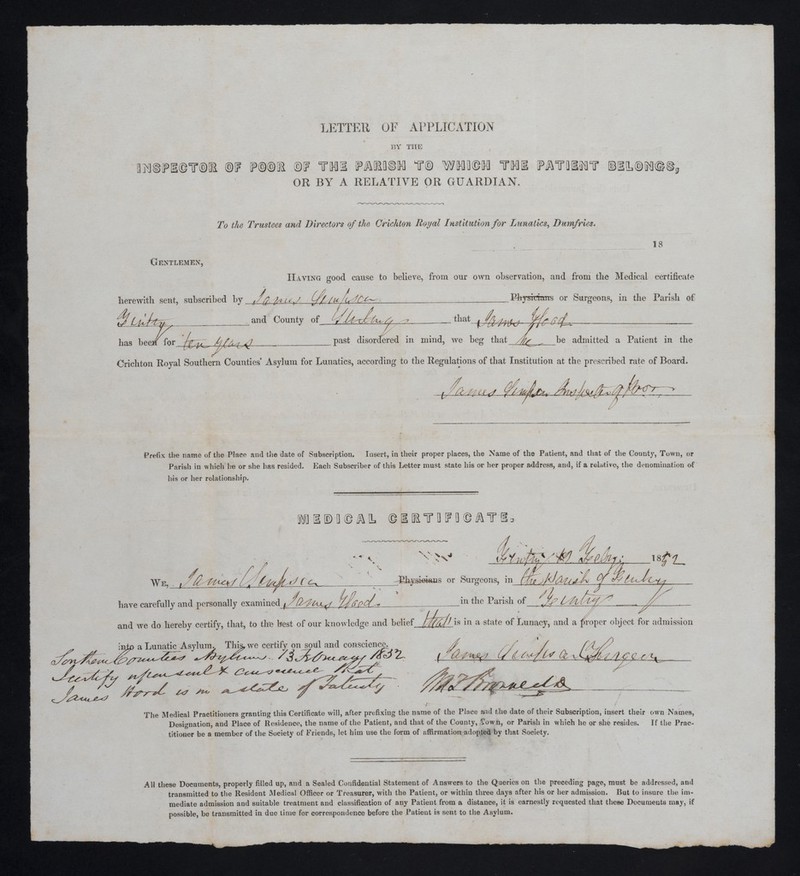 LETTER OF APPLICATION
BY THE
INSPECTOR OF POOR OF THE PARISH TO WHICH THE PATIENT BELONGS,
OR BY A RELATIVE OR GUARDIAN.
To the Trustees and Directors of the Crichton Royal Institution for Lunatics, Dumfries.
18
GENTLEMEN,
HAVING good cause to believe, from our own observation, and from the Medical certificate
herewith sent, subscribed by James Simpson Physicians or Surgeons, in the Parish of
Fintry and County of Stirling that James Hood
has been for ten years past disordered in mind, we beg that he be admitted a Patient in the
Crichton Royal Southern Counties' Asylum for Lunatics, according to the Regulations of that Institution at the prescribed rate of Board.
James Simpson Inspector of Poor
Prefix the name of the Place and the date of Subscription. Insert, in their proper places, the Name of the Patient, and that of the County, Town, or
Parish in which he or she has resided. Each Subscriber of this Letter must state his or her proper address, and, if a relative, the denomination of
his or her relationship.
MEDICAL CERTIFICATE.
Fintry Feby: 1852
WE, James Simpson Physicians or Surgeons, in the Parish of Fintry
have carefully and personally examined James Hood in the Parish of Fintry
and we do hereby certify, that, to the best of our knowledge and belief that is in a state of Lunacy, and a proper object for admission
into a Lunatic Asylum. This, we certify on soul and conscience.
Southern Counties Asylum. 13 February 1852
I certify upon soul & conscience that
James Hood is in a state of Fatuity
James Simpson Surgeon
The Medical Practitioners granting this Certificate will, after prefixing the name of the Place and the date of their Subscription, insert their own Names,
Designation, and Place of Residence, the name of the Patient, and that of the County, Town, or Parish in which he or she resides. If the Prac-
titioner be a member of the Society of Friends, let him use the form of affirmation adopted by that Society.
All these Documents, properly filled up, and a Sealed Confidential Statement of Answers to the Queries on the preceding page, must be addressed, and
transmitted to the Resident Medical Officer or Treasurer, with the Patient, or within three days after his or her admission. But to insure the im-
mediate admission and suitable treatment and classification of any Patient from a distance, it is earnestly requested that these Documents may, if
possible, be transmitted in due time for correspondence before the Patient is sent to the Asylum.